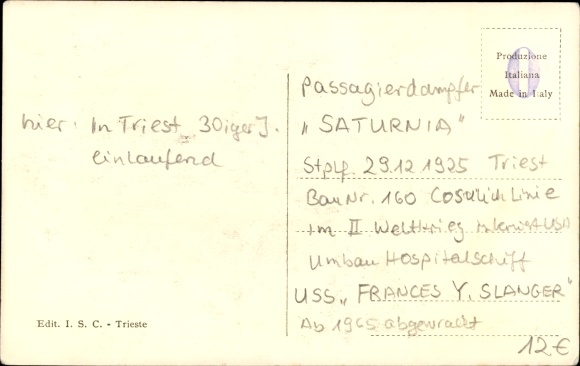 Produzione
Italiana
Made in Italy
hier: In Triest 30iger J.
einlaufend
Passagierdampfer
„SATURNIA"
Stplf. 29.12.1925 Triest
Bau Nr. 160 Cosulich Linie
im II Weltkrieg interniert USA
Umbau Hospitalschiff
USS „FRANCES Y. SLANGER"
Ab 1965 abgewrackt
Edit. I. S. C. - Trieste
12€